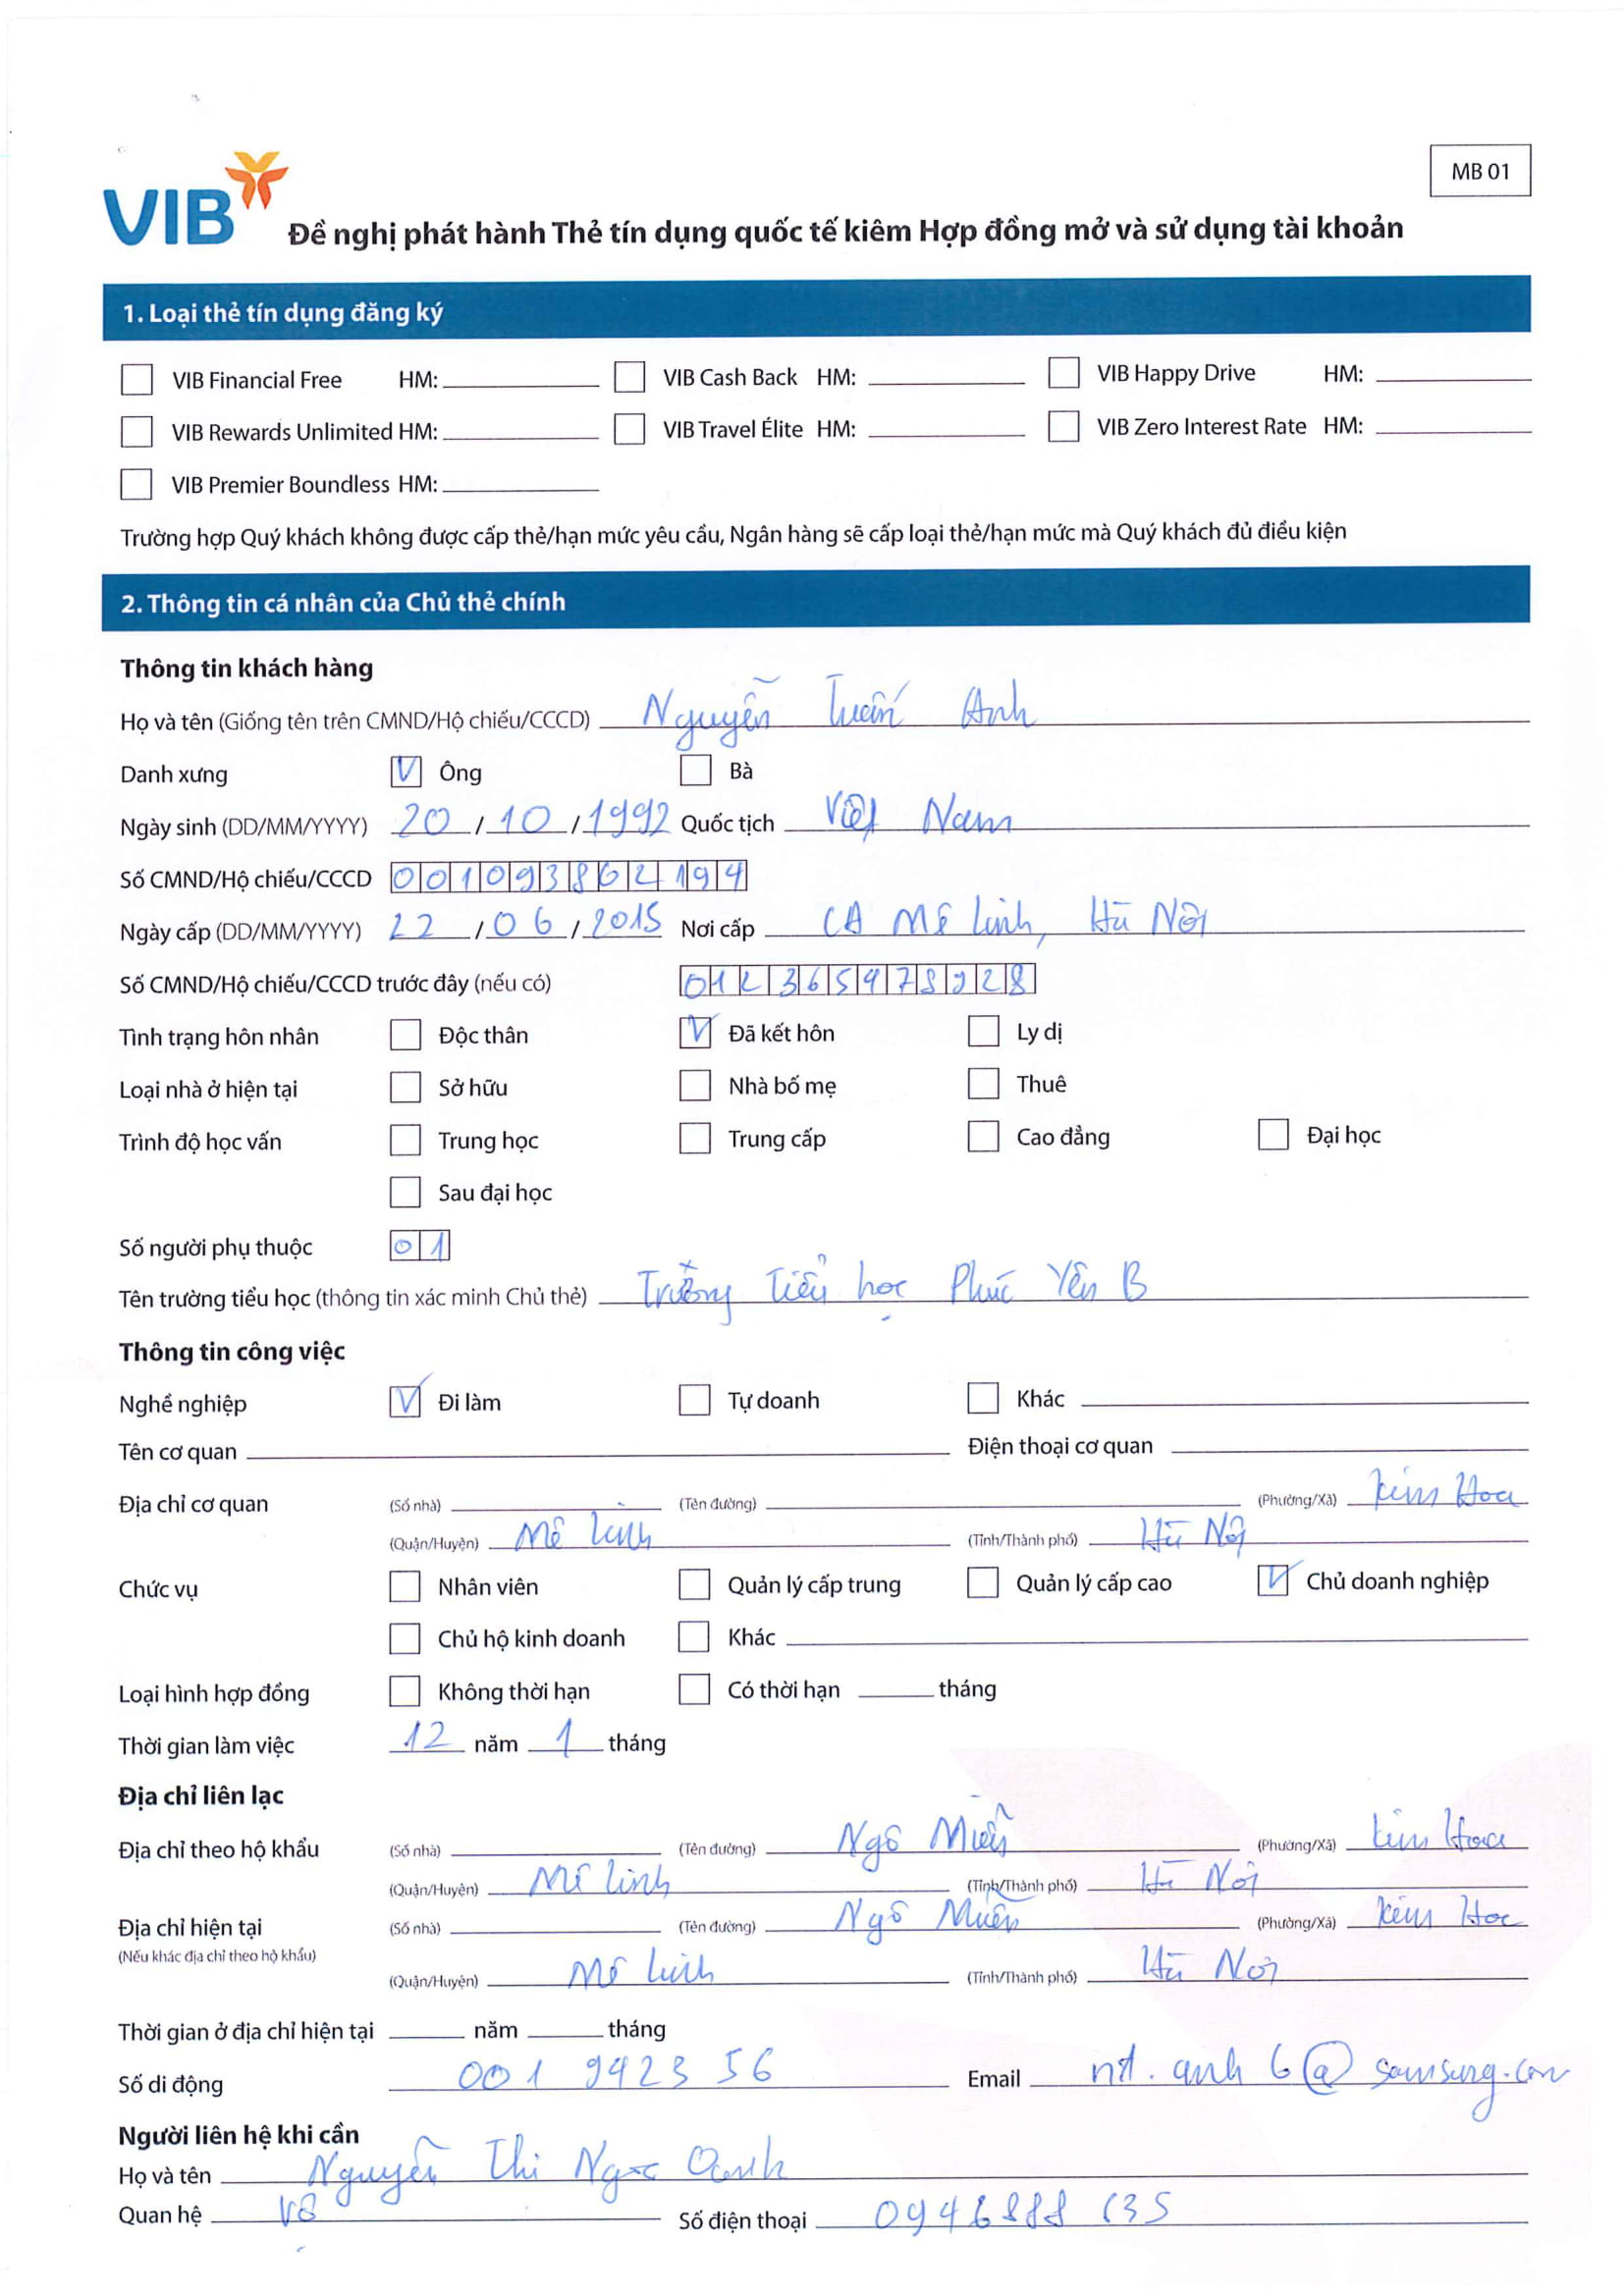 MB 01
VIB
Đề nghị phát hành Thẻ tín dụng quốc tế kiêm Hợp đồng mở và sử dụng tài khoản
1. Loại thẻ tín dụng đăng ký
VIB Financial Free HM: VIB Cash Back HM: VIB Happy Drive HM:
VIB Rewards Unlimited HM: VIB Travel Élite HM: VIB Zero Interest Rate HM:
VIB Premier Boundless HM:
Trường hợp Quý khách không được cấp thẻ/hạn mức yêu cầu, Ngân hàng sẽ cấp loại thẻ/hạn mức mà Quý khách đủ điều kiện
2. Thông tin cá nhân của Chủ thẻ chính
Thông tin khách hàng
Họ và tên (Giống tên trên CMND/Hộ chiếu/CCCD) Nguyễn Tuấn Anh
Danh xưng V Ông Bà
Ngày sinh (DD/MM/YYYY) 20 / 10 / 1992 Quốc tịch Việt Nam
Số CMND/Hộ chiếu/CCCD 001093862194
Ngày cấp (DD/MM/YYYY) 22 / 06 / 2015 Nơi cấp CA Mê Linh, Hà Nội
Số CMND/Hộ chiếu/CCCD trước đây (nếu có)
Tình trạng hôn nhân Độc thân V Đã kết hôn Ly dị
Loại nhà ở hiện tại Sở hữu Nhà bố mẹ Thuê
Trình độ học vấn Trung học Trung cấp Cao đẳng Đại học
Sau đại học
Số người phụ thuộc 01
Tên trường tiểu học (thông tin xác minh Chủ thẻ) Trường Tiểu học Phúc Yên B
Thông tin công việc
Nghề nghiệp V Đi làm Tự doanh Khác
Tên cơ quan Điện thoại cơ quan
Địa chỉ cơ quan (Số nhà) (Tên đường) (Phường/Xã) Kim Hoa
(Quận/Huyện) Mê Linh (Tỉnh/Thành phố) Hà Nội
Chức vụ Nhân viên Quản lý cấp trung Quản lý cấp cao V Chủ doanh nghiệp
Chủ hộ kinh doanh Khác
Loại hình hợp đồng Không thời hạn Có thời hạn tháng
Thời gian làm việc 12 năm 1 tháng
Địa chỉ liên lạc
Địa chỉ theo hộ khẩu (Số nhà) (Tên đường) Ngô Miễn (Phường/Xã) Kim Hoa
(Quận/Huyện) Mê Linh (Tỉnh/Thành phố) Hà Nội
Địa chỉ hiện tại (Số nhà) (Tên đường) Ngô Miễn (Phường/Xã) Kim Hoa
(Nếu khác địa chỉ theo hộ khẩu)
(Quận/Huyện) Mê Linh (Tỉnh/Thành phố) Hà Nội
Thời gian ở địa chỉ hiện tại năm tháng
Số di động 001 942356 Email nt.anh6@samsung.com
Người liên hệ khi cần
Họ và tên Nguyễn Thị Ngọc Oanh
Quan hệ Vợ Số điện thoại 0946888635